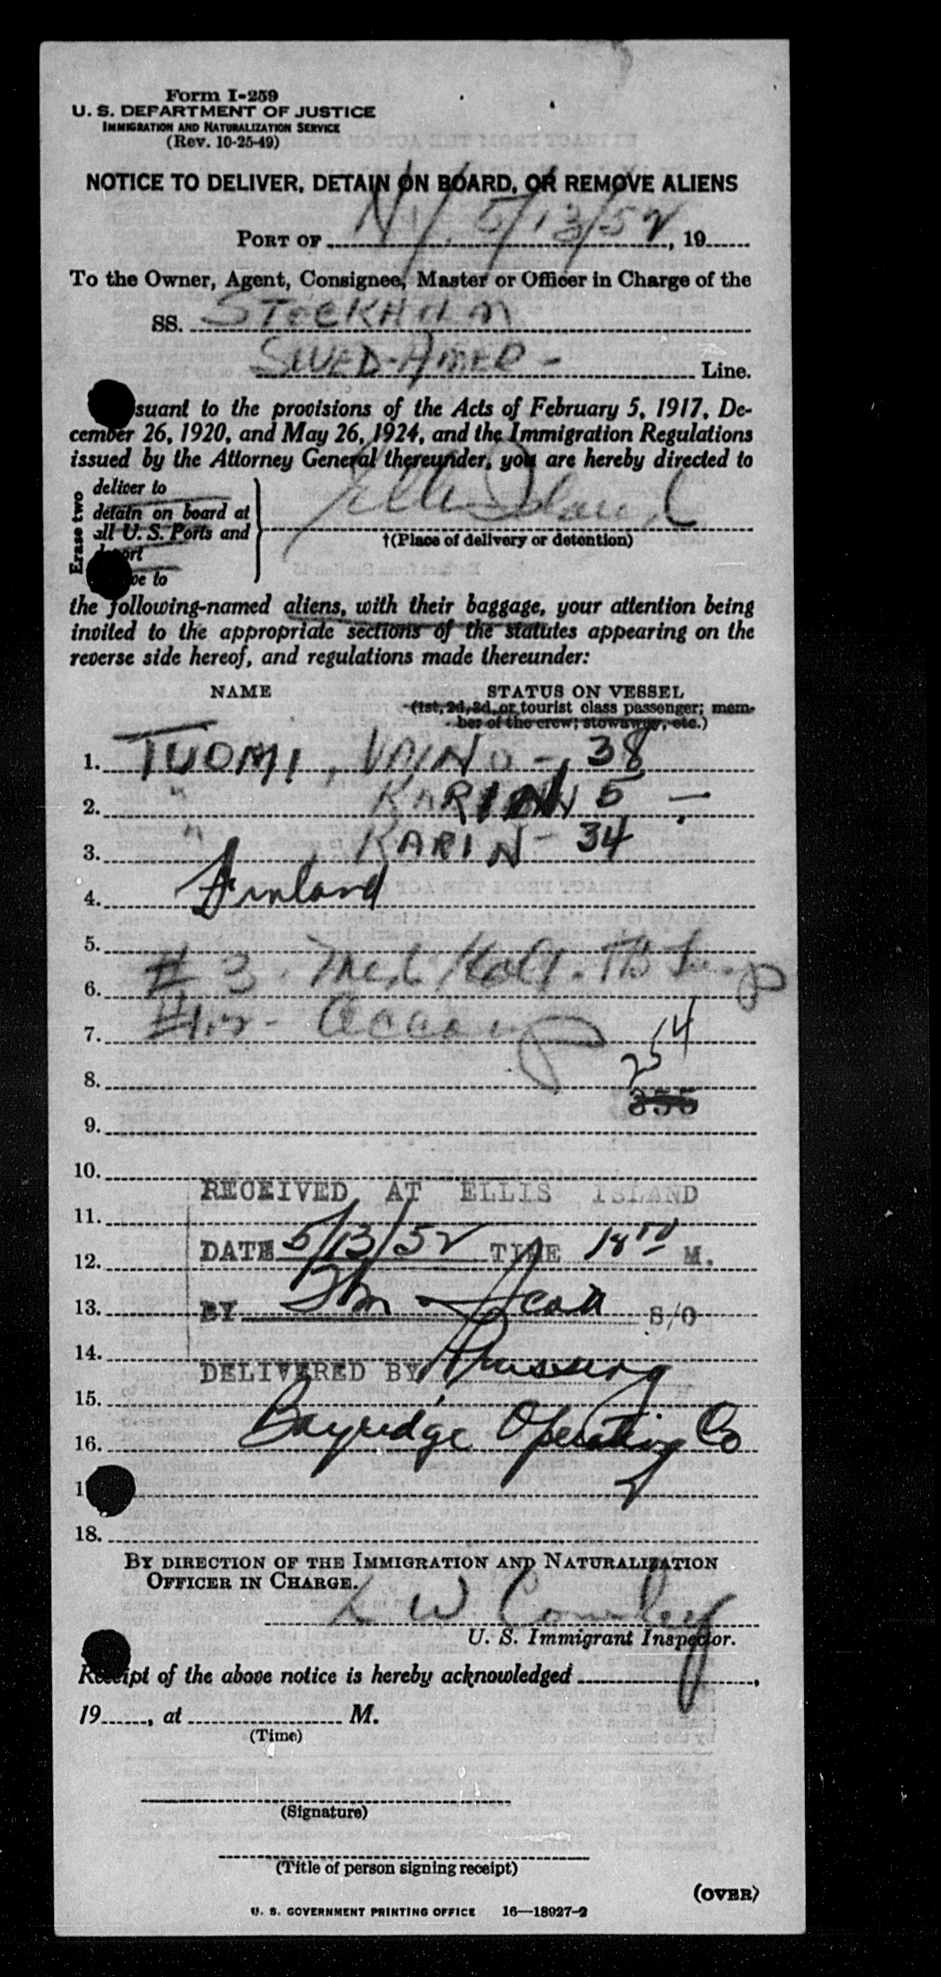 Form I-259
U. S. DEPARTMENT OF JUSTICE
IMMIGRATION AND NATURALIZATION SERVICE
(Rev. 10-25-49)
NOTICE TO DELIVER, DETAIN ON BOARD, OR REMOVE ALIENS
PORT OF NY 5/13/52, 19
To the Owner, Agent, Consignee, Master or Officer in Charge of the
SS. STOCKHOLM
SWED-AMER- Line.
suant to the provisions of the Acts of February 5, 1917, De-
cember 26, 1920, and May 26, 1924, and the Immigration Regulations
issued by the Attorney General thereunder, you are hereby directed to
Erase two
deliver to
detain on board at
all U. S. Ports and
port
ve to
Ellis Island
†(Place of delivery or detention)
the following-named aliens, with their baggage, your attention being
invited to the appropriate sections of the statutes appearing on the
reverse side hereof, and regulations made thereunder:
NAME STATUS ON VESSEL
(1st, 2d, 3d, or tourist class passenger; mem-
ber of the crew; stowaway, etc.)
1. TUOMI, VAINO - 38
2. " 5 —
3. " KARIN - 34
4. Finland
5.
6. #3. Med Hold. TB
7. #1+2-
8. 254
355
9.
10.
RECEIVED AT ELLIS ISLAND
11.
12. DATE 5/13/52 TIME M.
13. BY S/O
14.
DELIVERED BY
15.
16. Bayridge Operating Co
1
18.
BY DIRECTION OF THE IMMIGRATION AND NATURALIZATION
OFFICER IN CHARGE.
U. S. Immigrant Inspector.
Receipt of the above notice is hereby acknowledged ,
19 , at M.
(Time)
(Signature)
(Title of person signing receipt)
(OVER)
U. S. GOVERNMENT PRINTING OFFICE 16—18927-2